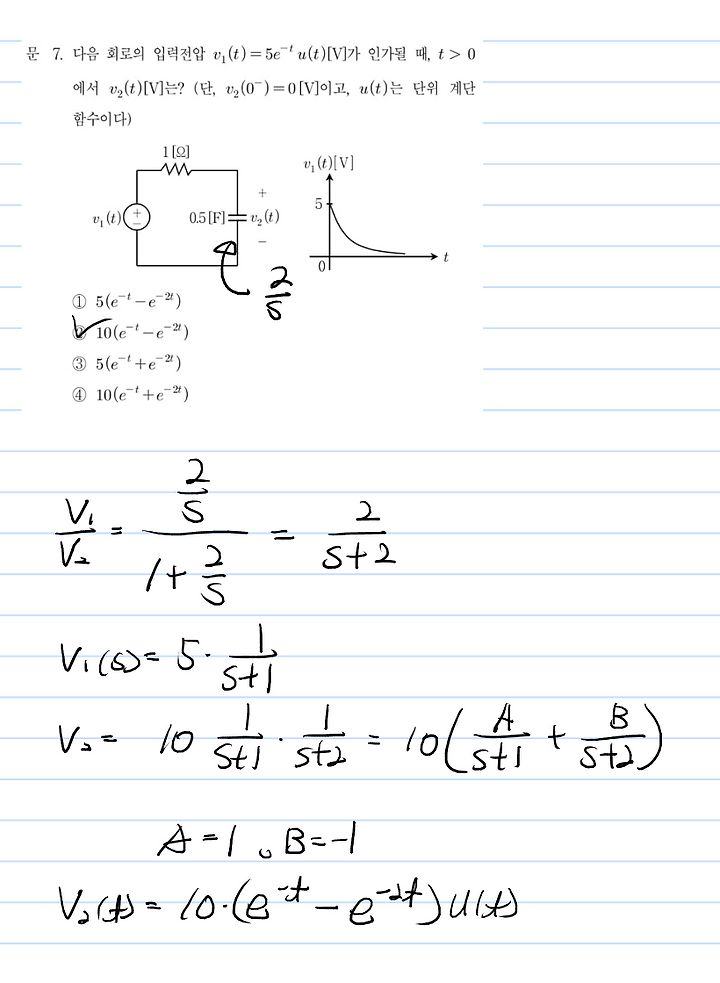 문 7. 다음 회로의 입력전압 v₁(t)=5e⁻ᵗ u(t)[V]가 인가될 때, t > 0
에서 v₂(t)[V]는? (단, v₂(0⁻)=0[V]이고, u(t)는 단위 계단
함수이다)
1[Ω]
v₁(t)
+
−
0.5[F]
+
v₂(t)
−
v₁(t)[V]
5
0
t
2/s
① 5(e⁻ᵗ−e⁻²ᵗ)
② 10(e⁻ᵗ−e⁻²ᵗ)
③ 5(e⁻ᵗ+e⁻²ᵗ)
④ 10(e⁻ᵗ+e⁻²ᵗ)
V₁/V₂ = (2/s)/(1+2/s) = 2/(s+2)
V₁(s)= 5·1/(s+1)
V₂= 10 1/(s+1)·1/(s+2) = 10(A/(s+1) + B/(s+2))
A=1 。B=-1
V₂(t)= 10·(e⁻ᵗ − e⁻²ᵗ)u(t)